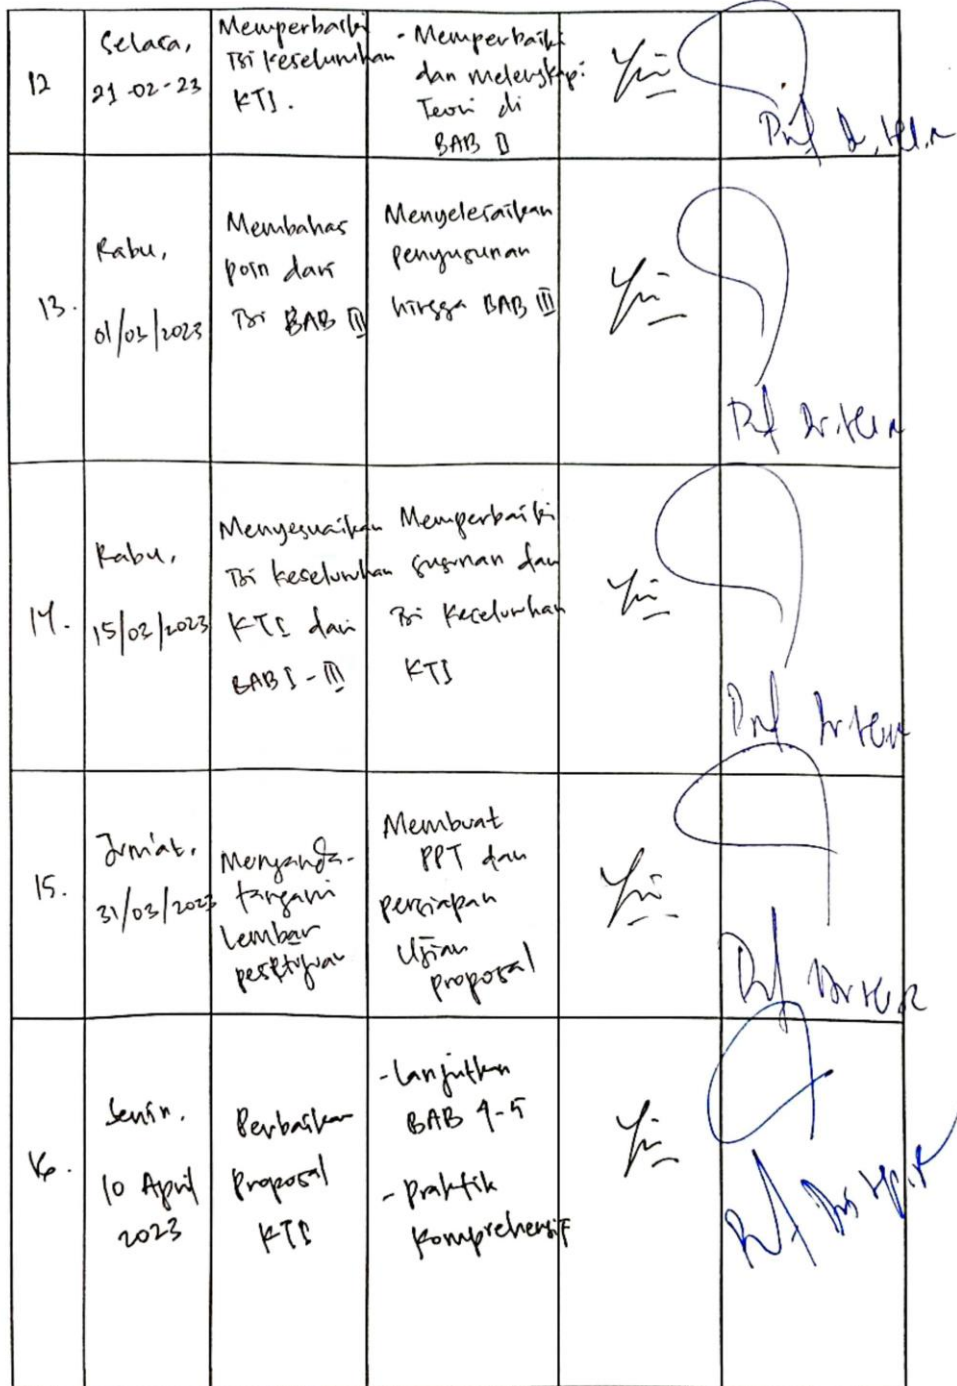 12
Selasa,
21-02-23
Memperbaiki
Isi keseluruhan
KTI.
- Memperbaiki
dan melengkapi
Teori di
BAB II
13.
Rabu,
01/03/2023
Membahas
poin dari
Isi BAB III
Menyelesaikan
penyusunan
hingga BAB III
14.
Rabu,
15/03/2023
Menyesuaikan
Isi keseluruhan
KTI dari
BAB I - III
Memperbaiki
susunan dan
Isi keseluruhan
KTI
15.
Jum'at,
31/03/2023
Menanda-
tangani
Lembar
persetujuan
Membuat
PPT dan
persiapan
Ujian
proposal
16.
Senin,
10 April
2023
Perbaikan
Proposal
KTI
- Lanjutkan
BAB 4-5
- Praktik
Komprehensif